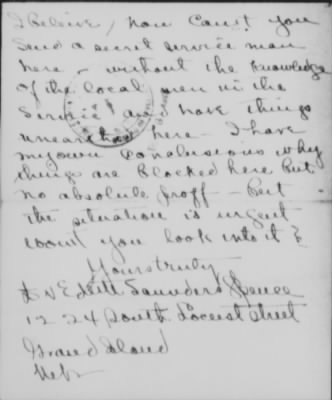 I Beleive / now Can't you
send a secret service man
here - without the knowledge
of the local men in the
Service and have things
unearthed here - I have
my own Conclusions why
things are Blocked here But
no absolute proff - But
the situation is urgent
wont you look into it?
Yours truly
Edith Saunders Spence
1224 South Locust Street
Grand Island
Nebr